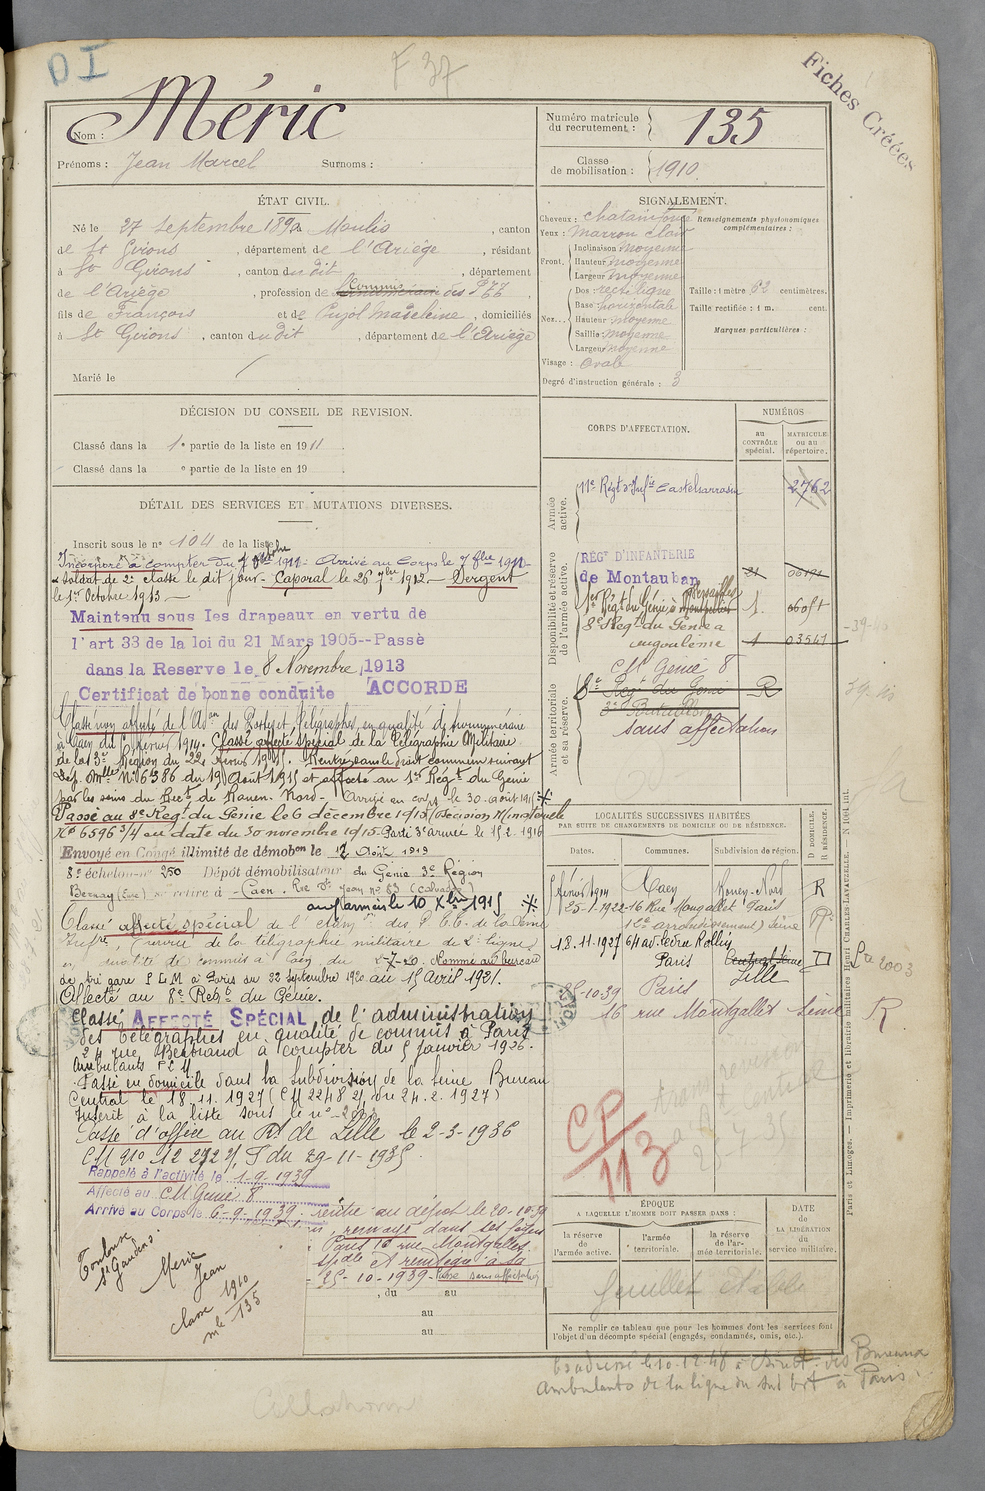 DI
F 37
Fiches Créées
Nom : Méric
Prénoms : Jean Marcel Surnoms :
Numéro matricule du recrutement : 135
Classe de mobilisation : 1910
ÉTAT CIVIL.
Né le 27 Septembre 1890 à Moulis, canton
de St Girons, département de l'Ariège, résidant
à St Girons, canton du dit, département
de l'Ariège, profession de Commis des PTT,
fils de François et de Pujol Madeleine, domiciliés
à St Girons, canton du dit, département de l'Ariège
Marié le
SIGNALEMENT.
Cheveux : chatain foncé
Yeux : marron clair
Front. Inclinaison moyenne
Hauteur moyenne
Largeur moyenne
Nez... Dos rectiligne
Base horizontale
Hauteur moyenne
Saillie moyenne
Largeur moyenne
Visage : ovale
Degré d'instruction générale : 3
Renseignements physionomiques complémentaires :
Taille : 1 mètre 62 centimètres.
Taille rectifiée : 1 m. cent.
Marques particulières :
DÉCISION DU CONSEIL DE REVISION.
Classé dans la 1e partie de la liste en 1911.
Classé dans la e partie de la liste en 19 .
DÉTAIL DES SERVICES ET MUTATIONS DIVERSES.
Inscrit sous le no 104 de la liste
Incorporé à compter du 7 octobre 1911 - Arrivé au Corps le 7 8bre 1911
& soldat de 2e classe le dit jour - Caporal le 26 7bre 1912. - Sergent
le 1er Octobre 1913. -
Maintenu sous les drapeaux en vertu de
l'art 33 de la loi du 21 Mars 1905--Passé
dans la Reserve le 8 Novembre 1913
Certificat de bonne conduite ACCORDÉ
Classé non affecté de l'Adon des Postes et Télégraphes en qualité de surnuméraire
à Caen du février 1914. Classé affecté spécial de la Télégraphie Militaire
de la 3e Région du 22 février 1915. Rentré dans le droit commun suivant
Dép. Mlle No 6386 du 19 Août 1915 et affecté au 1er Régt du Génie
par les soins du Rect de Rouen. Nord - Arrivé au corps le 30 août 1915
Passé au 8e Régt du Génie le 6 décembre 1915 (décision Ministérielle
No 6596 3/4 en date du 30 novembre 1915 - Parti armée le 15 2. 1916
Envoyé en Congé illimité de démobon le 12 Août 1919
8e échelon no 250 Dépôt démobilisateur du Génie 3e Région
Bernay (Eure) se retire à Caen. Rue St Jean no 83 (Calvados)
aux armées le 10 Xbre 1915
Classé affecté spécial de l'
de la télégraphie militaire de 2e ligne
en qualité de commis à Caen du 2-7-20. Nommé au bureau
de tri gare PLM à Paris du 22 Septembre 1920 au 15 Avril 1921.
Affecté au 8e Régt du Génie.
Classé AFFECTÉ SPÉCIAL de l'administration
des télégraphes en qualité de commis à Paris
24 rue Bertrand à compter du 5 janvier 1926.
Ambulants PLM
Passé en domicile dans la Subdivision de la Seine Bureau
Central le 18.11.1927 (CM 22482/ du 24.2.1927)
Inscrit à la liste sous le no
Passé d'office au Rt de Lille le 2-3-1936
CM 910 12 272 /S du 29-11-1935.
Rappelé à l'activité le 1-9-1939
Affecté au CM Génie 8
Arrivé au Corps le 6-9-1939. rentré au dépôt le 20-10-39
renvoyé dans ses foyers
Paris 16 rue Montgallet.
et
25-10-1939 - Classé sans affectation
, du au
au
au
Toulouse
St Gaudens.
Méric
Jean
classe 1910
mle 135
CORPS D'AFFECTATION.
NUMÉROS
au CONTRÔLE spécial.
MATRICULE ou au répertoire.
Armée active.
11e Régt d'Infie Castelsarrasin 2762
Disponibilité et réserve de l'armée active.
RÉGT D'INFANTERIE
de Montauban 21
1er Régt du Génie à Montpellier Versailles 1
8e Régt du Génie à
Angoulême 1 03541
CM Génie 8
Armée territoriale et sa réserve.
8e Régt du Génie R
sans affectation
LOCALITÉS SUCCESSIVES HABITÉES
PAR SUITE DE CHANGEMENTS DE DOMICILE OU DE RÉSIDENCE.
Dates. Communes. Subdivision de région. D DOMICILE. R RÉSIDENCE
février 1914 Caen Rouen-Nord R
25-1-1922 16 Rue Mongallet Paris
(12e arrondissement) Seine R
18.11.1927 64 av. Ledru Rollin
Paris Central Seine D
Lille
25-10-39 Paris
16 rue Montgallet Seine R
CP
113
25-7-35
ÉPOQUE
A LAQUELLE L'HOMME DOIT PASSER DANS :
la réserve de l'armée active.
l'armée territoriale.
la réserve de l'armée territoriale.
DATE de LA LIBÉRATION du service militaire.
feuillet
Ne remplir ce tableau que pour les hommes dont les services font
l'objet d'un décompte spécial (engagés, condamnés, omis, etc.).
le 10-12-48 à Direct. des Bureaux
Ambulants de la ligne du Sud Est à Paris.
Paris et Limoges. — Imprimerie et librairie militaires Henri CHARLES-LAVAUZELLE. — N 1061 int.